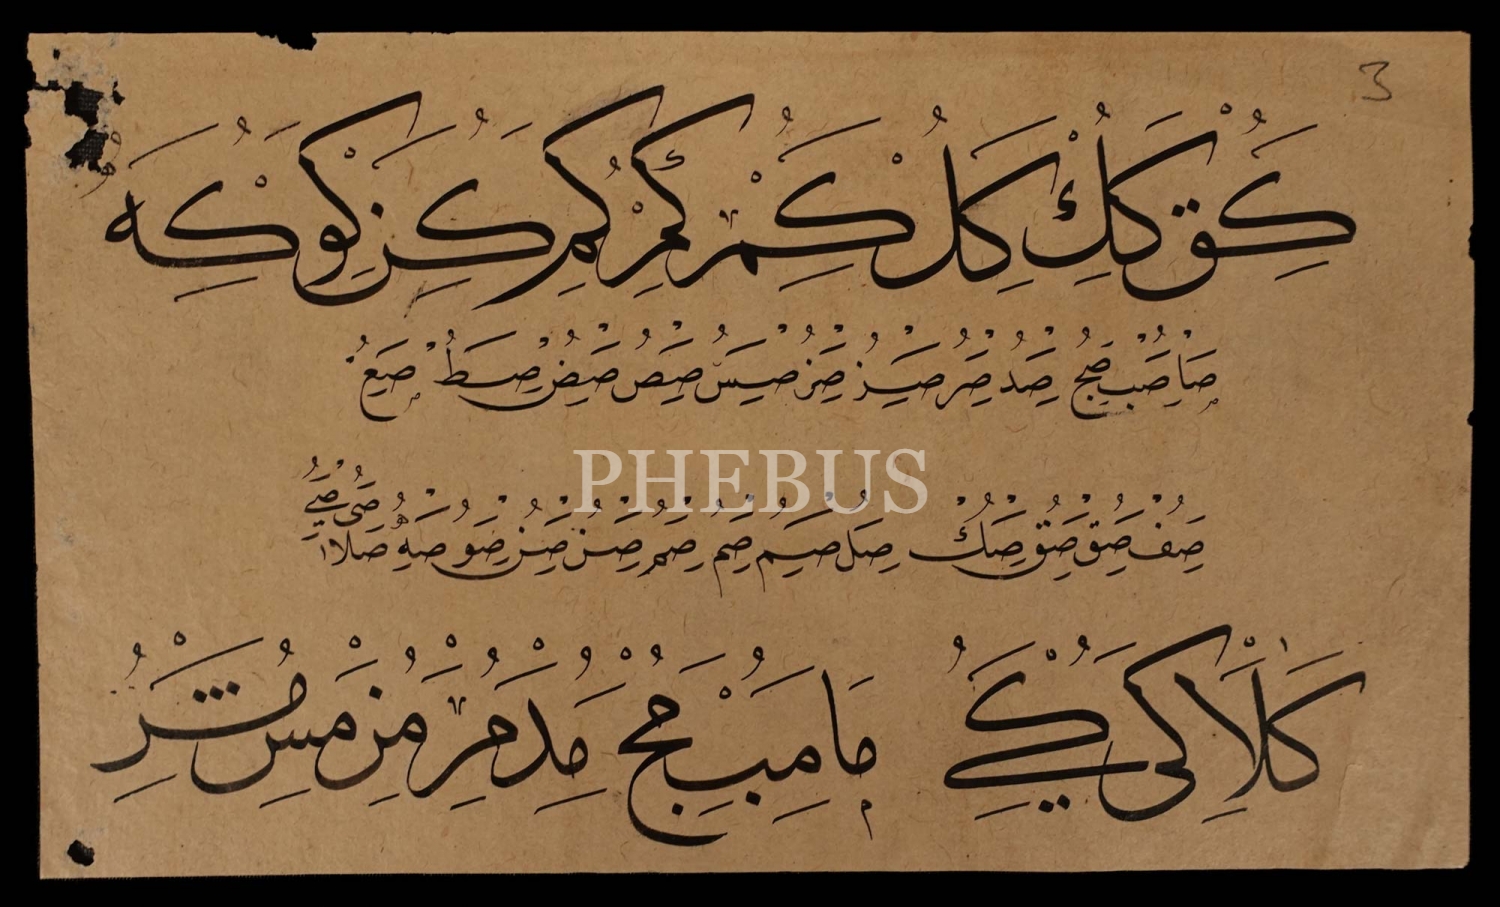 3
كق كك كل كم كم كم كن كو كه
صا صب صج صد صر صس صص صض صط صع
صف صق صق صك صل صم صم صم صن صن صو صه صلا صى صي
PHEBUS
كلا كى كي ما مب مج مد مر مز مس